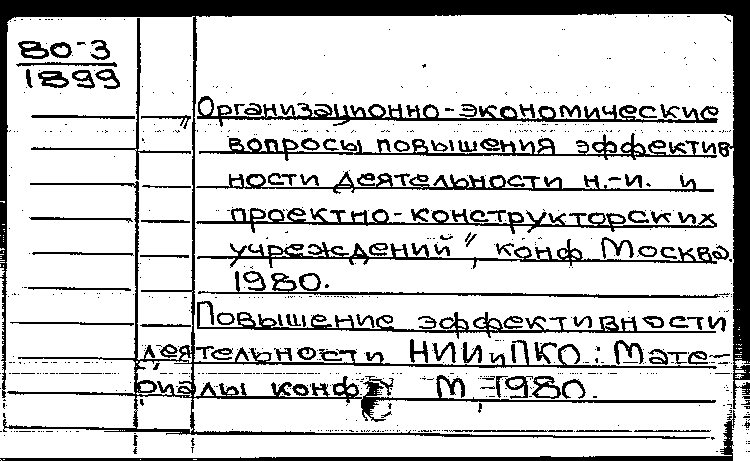 80-3
1899
"Организационно-экономические
вопросы повышения эффектив-
ности деятельности н.-и. и
проектно-конструкторских
учреждений", конф Москва.
1980.
Повышение эффективности
деятельности НИИиПКО: Мате-
риалы конф М, 1980.